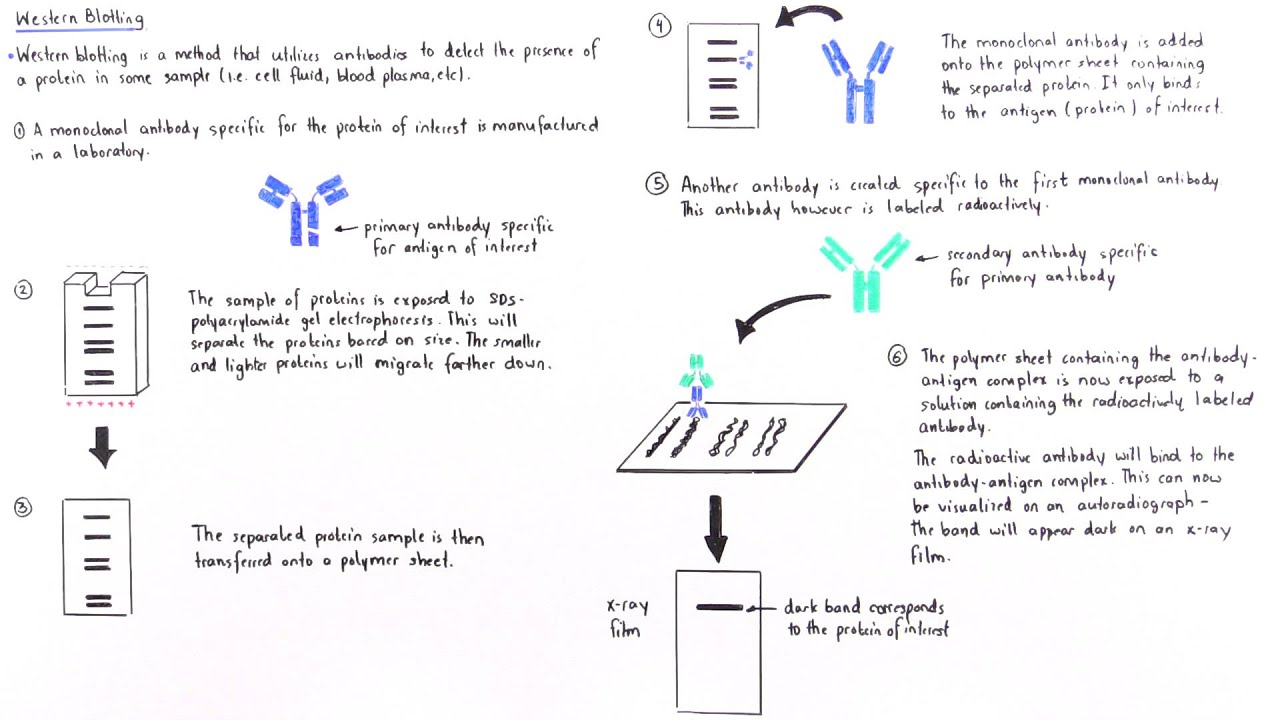 Western Blotting
• Western blotting is a method that utilizes antibodies to detect the presence of
a protein in some sample (i.e. cell fluid, blood plasma, etc).
① A monoclonal antibody specific for the protein of interest is manufactured
in a laboratory.
primary antibody specific
for antigen of interest
②
The sample of proteins is exposed to SDS-
polyacrylamide gel electrophoresis. This will
separate the proteins based on size. The smaller
and lighter proteins will migrate farther down.
+ + + + + + +
③
The separated protein sample is then
transferred onto a polymer sheet.
④
The monoclonal antibody is added
onto the polymer sheet containing
the separated protein. It only binds
to the antigen (protein) of interest.
⑤ Another antibody is created specific to the first monoclonal antibody
This antibody however is labeled radioactively.
secondary antibody specific
for primary antibody
⑥ The polymer sheet containing the antibody-
antigen complex is now exposed to a
solution containing the radioactively labeled
antibody.
The radioactive antibody will bind to the
antibody-antigen complex. This can now
be visualized on an autoradiograph -
the band will appear dark on an x-ray
film.
x-ray
film
dark band corresponds
to the protein of interest